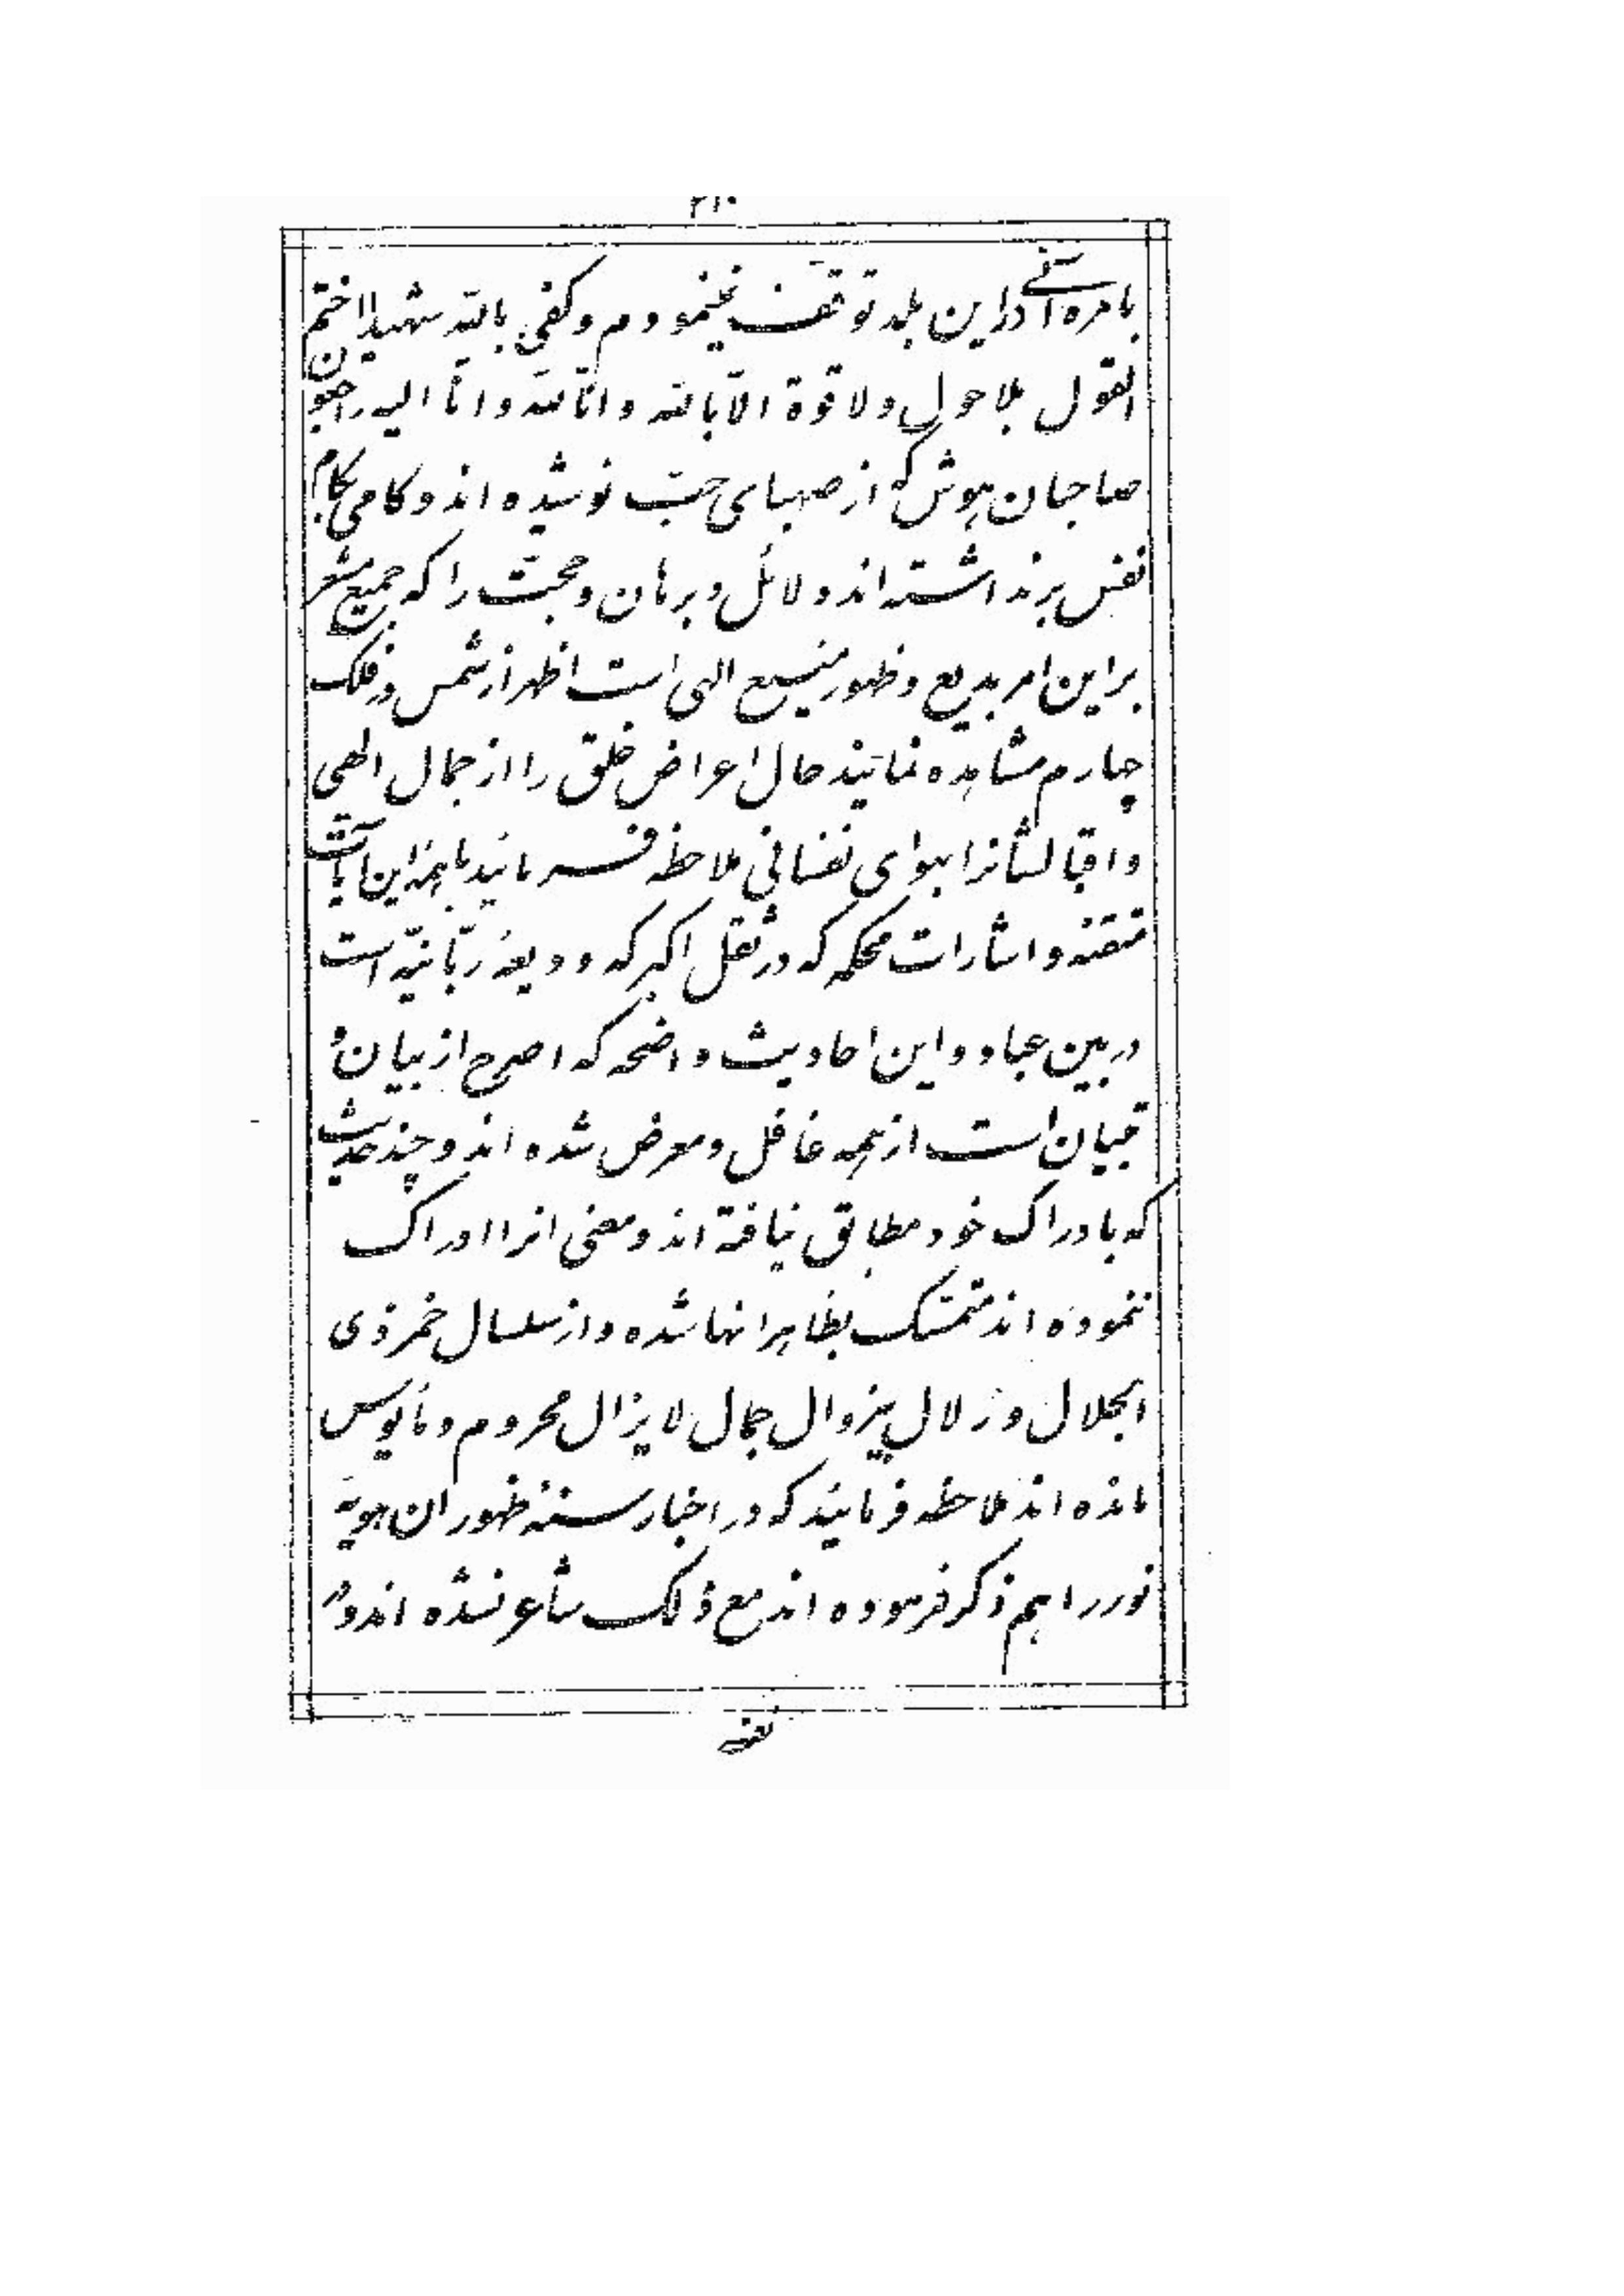 ٢١٠
بامره آنی در این بلد توقف نمینمودم و کفی بالله شهیدا اختم
القول بلا حول و لا قوة الّا بالله و انّا لله و انّا الیه راجعون
صاحبان هوش که از صهبای حبّ نوشیده اند و کامی بکام
نفس برنداشته اند دلائل و برهان و حجّت را که جمیع مشعر
بر این امر بدیع و ظهور منیع الهی است اظهر از شمس در فلک
چهارم مشاهده نمایند حال اعراض خلق را از جمال الهی
و اقبالشانرا بهوای نفسانی ملاحظه فرمائید با همهٔ این آیات
متقنه و اشارات محکمه که در ثقل اکبر که ودیعهٔ ربّانیّه است
در بین عباد و این احادیث واضحه که اصرح از بیان و
تبیان است از همه غافل و معرض شده اند و چند حدیث
که بادراک خود مطابق نیافته اند و معنی انرا ادراک
ننموده اند متمسّک بظاهر انها شده و از سلسال خمر ذی
الجلال و زلال بیزوال جمال لا یزال محروم و مأیوس
مانده اند ملاحظه فرمائید که در اخبار سنهٔ ظهور ان هویّهٔ
نور را هم ذکر فرموده اند مع ذلک شاعر نشده اند و در
نفسی